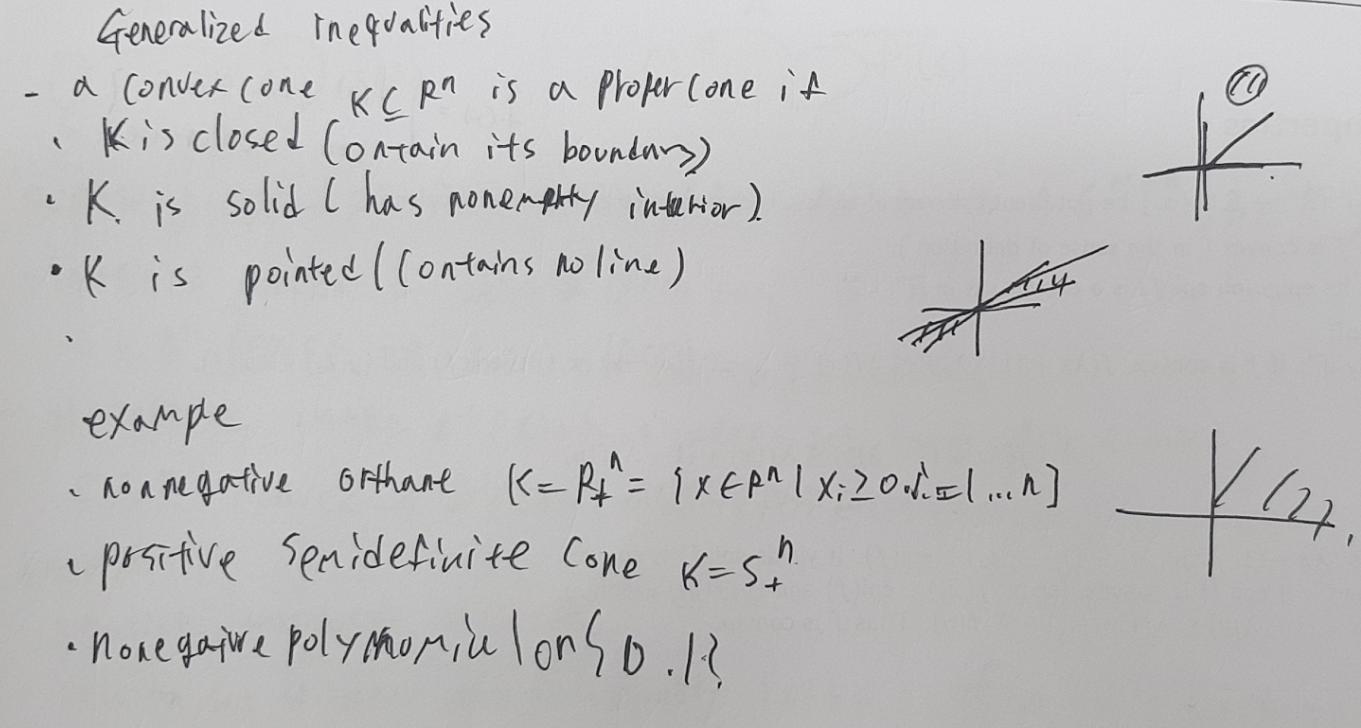 Generalized Inequalities
- a convex cone K ⊆ Rⁿ is a proper cone if
• K is closed (ontain its boundary)
• K is solid ( has nonempty interior)
• K is pointed ((ontains no line)
example
• nonnegative orthant K = R₊ⁿ = {x ∈ Rⁿ | xᵢ ≥ 0. i = 1 ... n]
• positive semidefinite cone K = S₊ⁿ
• nonegative polynomial on { 0 . 1 }